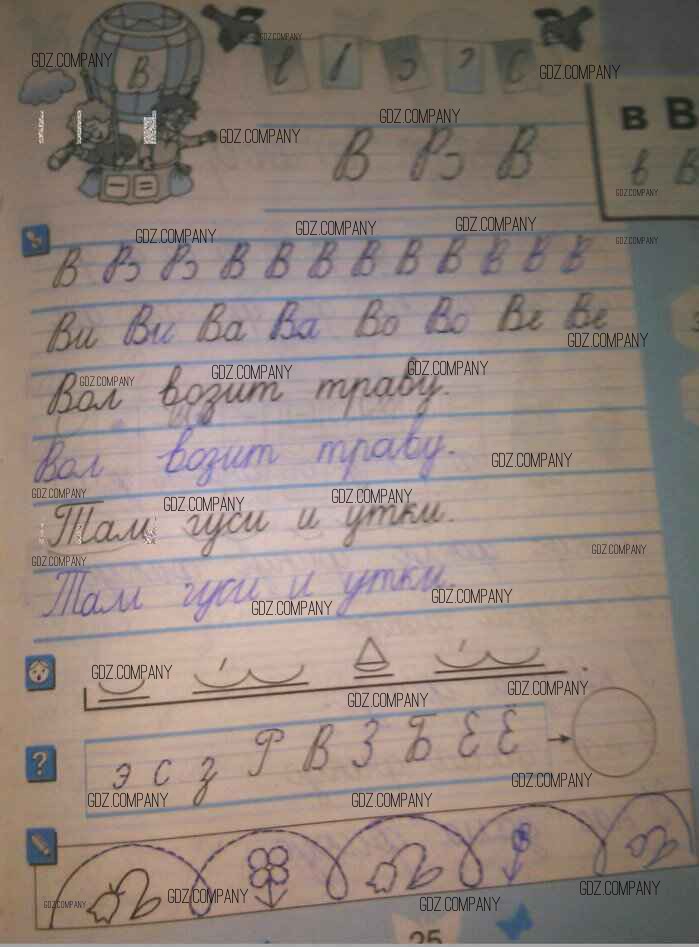 В
в В
В В
в В
В В В В В В В В В В В В
Ви Ви Ва Ва Во Во Ве Ве
Вол возит траву.
Вол возит траву.
Там гуси и утки.
Там гуси и утки.
?
э с з Р В З Б Е Ё
25
GDZ.COMPANY